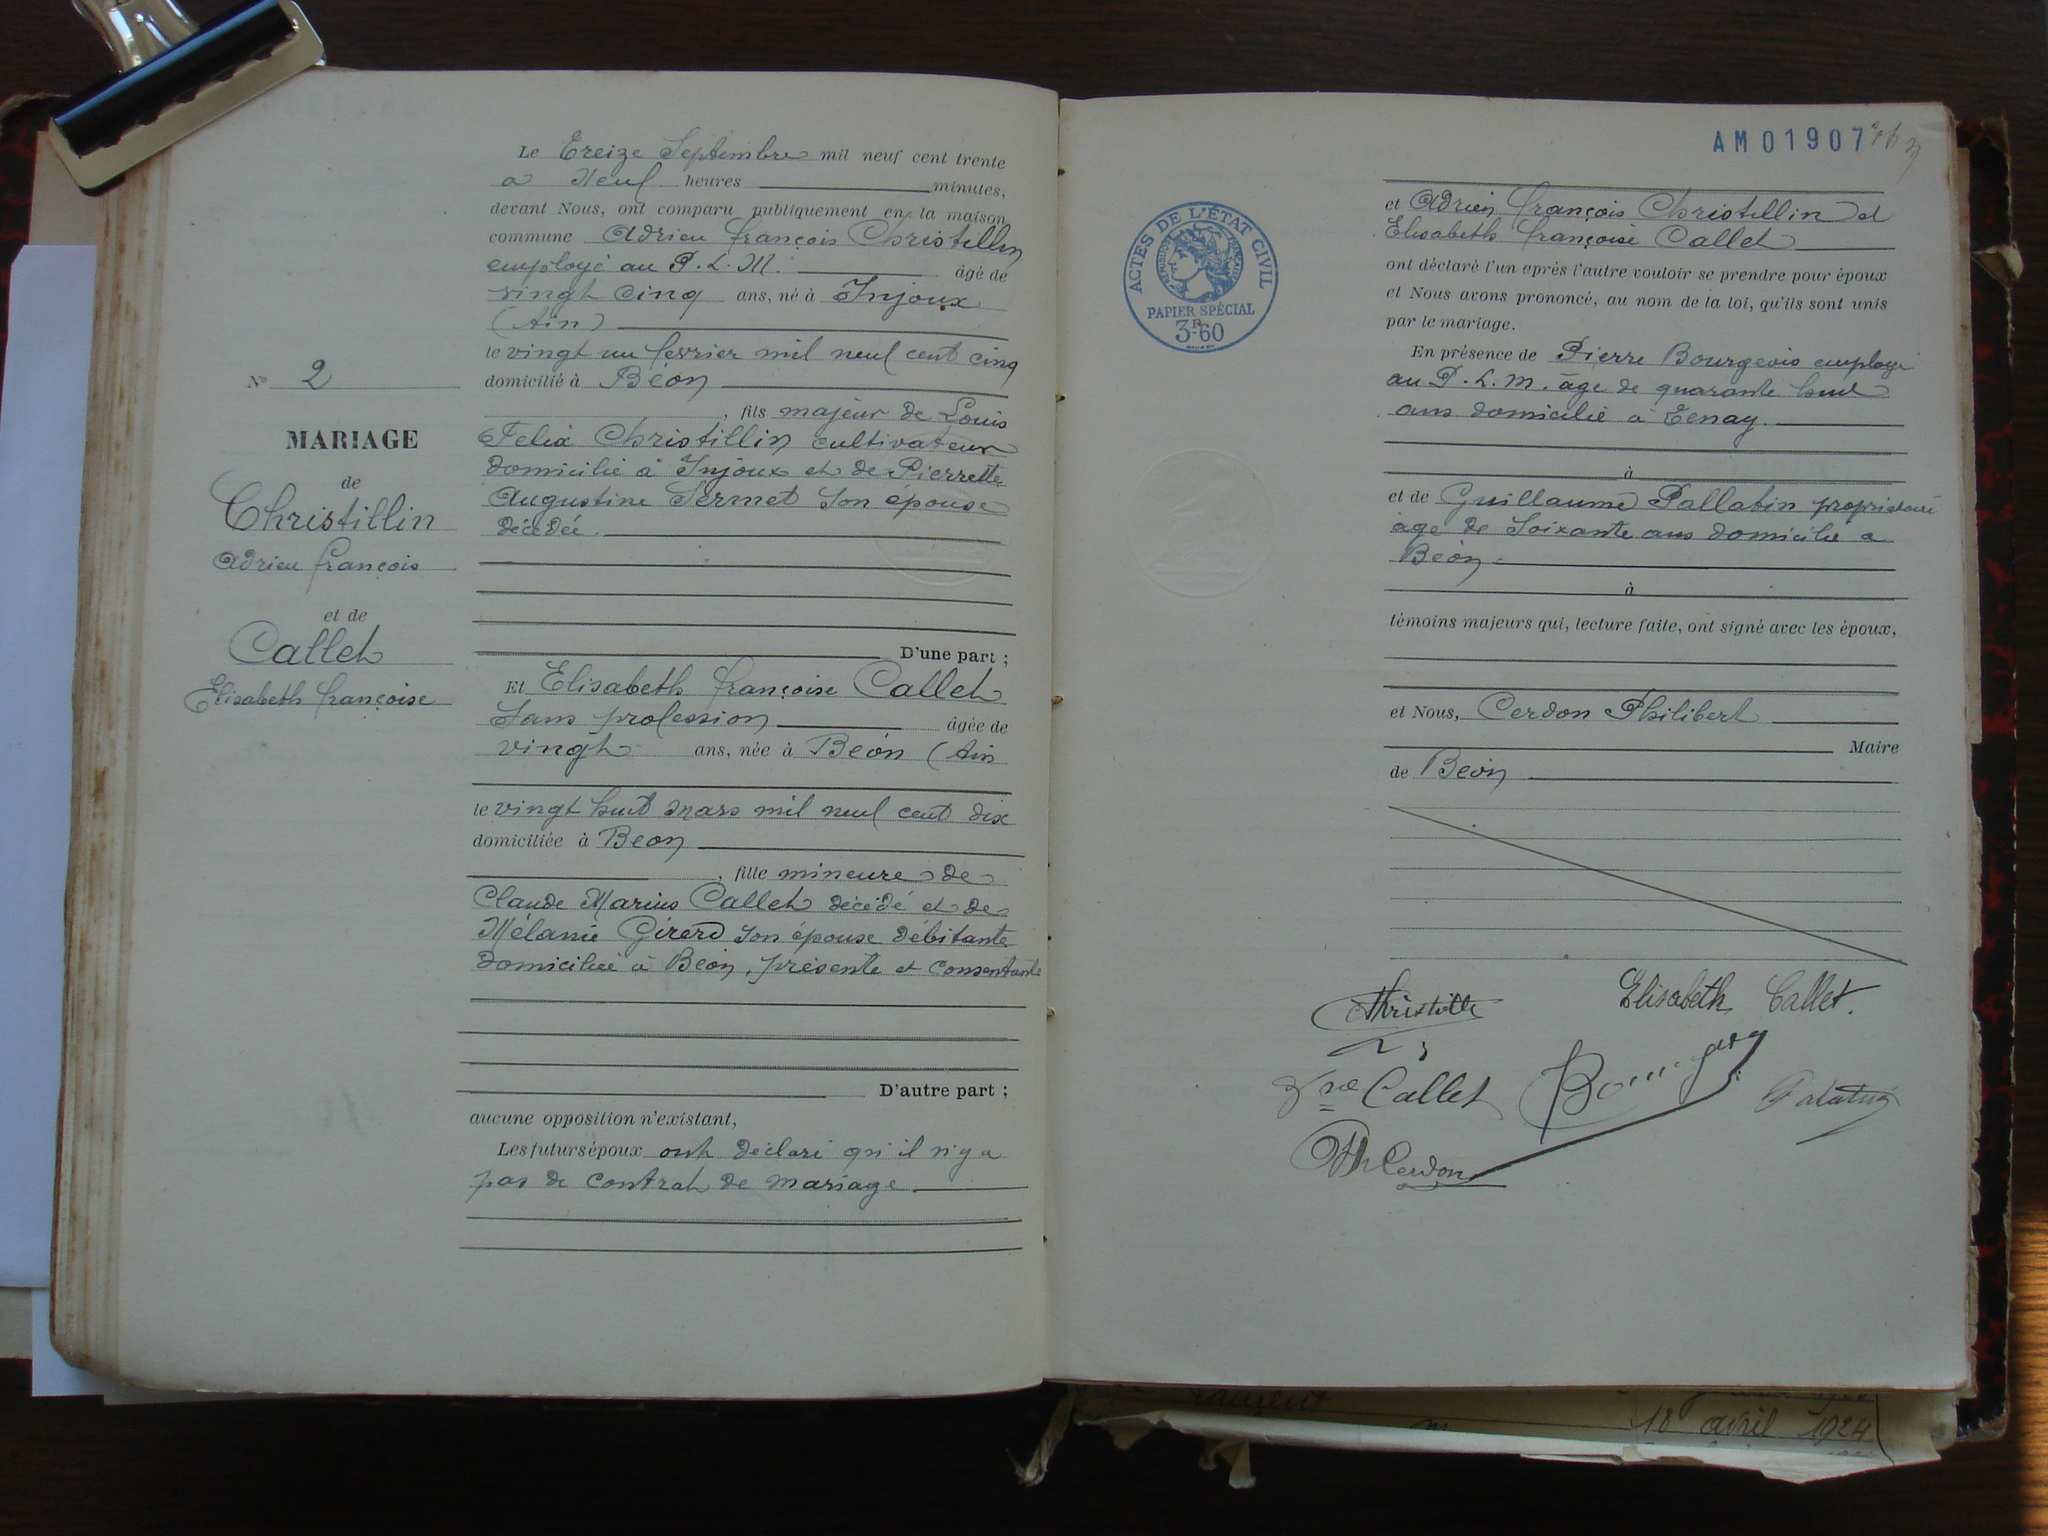 Nº 2
MARIAGE
de
Christillin
Adrien françois
et de
Callet
Elisabeth françoise
Le Treize Septembre mil neuf cent trente
a Neuf heures minutes,
devant Nous, ont comparu publiquement en la maison
commune Adrien françois Christillin
employé au P. L. M. âgé de
vingt cinq ans, né à Injoux
(Ain)
le vingt un fevrier mil neuf cent cinq
domicilié à Béon
, fils majeur de Louis
Felix Christillin cultivateur
domicilié à Injoux et de Pierrette
Augustine Sermet son épouse
décédée.
D'une part ;
Et Elisabeth françoise Callet
Sans profession âgée de
vingt ans, née à Beon (Ain
le vingt huit mars mil neuf cent dix
domiciliée à Beon
, fille mineure de
Claude Marius Callet décédé et de
Mélanie Girerd son épouse débitante
domiciliée à Beon, présente et consentante
D'autre part ;
aucune opposition n'existant,
Les futurs époux ont déclaré qu'il n'y a
pas de contrat de mariage.
AM01907
ACTES DE L'ÉTAT CIVIL
RÉPUBLIQUE FRANÇAISE
PAPIER SPÉCIAL
3F60
et Adrien françois Christillin et
Elisabeth françoise Callet
ont déclaré l'un après l'autre vouloir se prendre pour époux
et Nous avons prononcé, au nom de la loi, qu'ils sont unis
par le mariage.
En présence de Pierre Bourgeois employé
au P. L. M. âge de quarante huit
ans domicilié à Tenay.
à
et de Guillaume Pallatin propriétaire
âge de Soixante ans domicilié a
Béon.
à
témoins majeurs qui, lecture faite, ont signé avec les époux,
et Nous, Cerdon Philibert
Maire
de Beon
Elisabeth Callet.
Vve Callet
Ph Cerdon
18 avril 1924